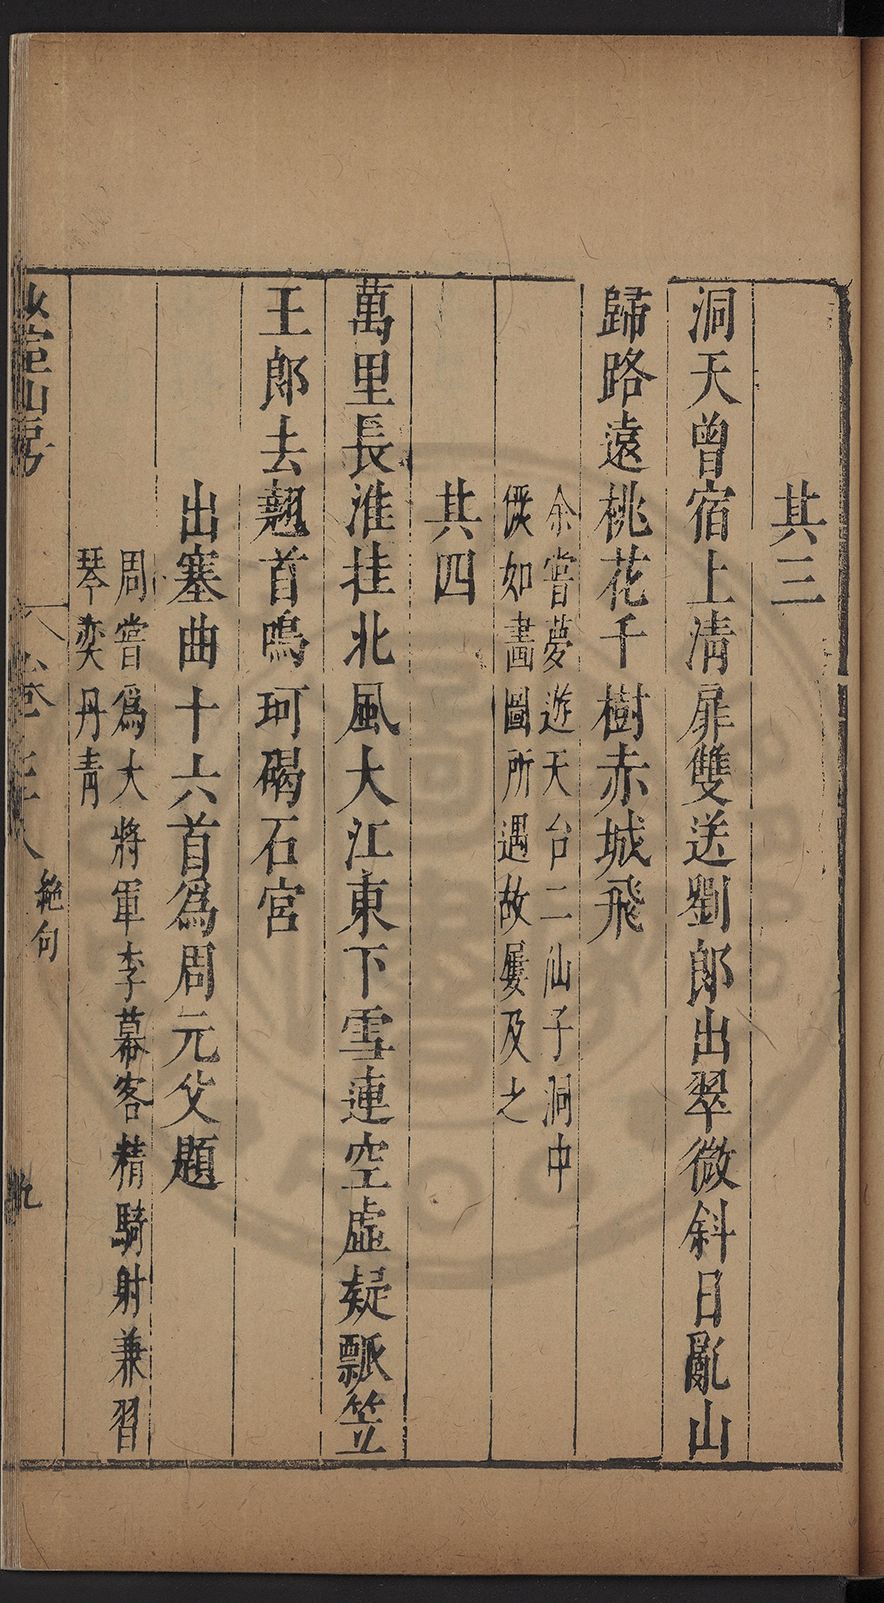 其三
洞天曾宿上清扉雙送劉郎出翠微斜日亂山
歸路遠桃花千樹赤城飛
余嘗夢遊天台二仙子洞中
儼如畫圖所遇故屢及之
其四
萬里長淮挂北風大江東下雪連空虛疑瓢笠
王郎去翹首鳴珂碣石宮
出塞曲十六首爲周元父題
周嘗爲大將軍李幕客精騎射兼習
琴奕丹青
室山房
卷
絶句
九